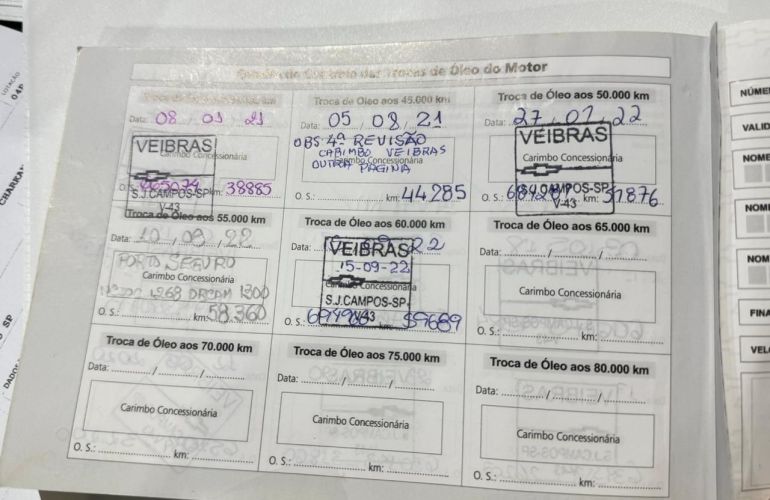 de Óleo do Motor
Troca de Óleo aos 45.000 km
Troca de Óleo aos 50.000 km
Data: 08 / 01 / 21
Data: 05 / 08 / 21
Data: 27 / 01 / 22
VEIBRAS
Carimbo Concessionária
S.J.CAMPOS-SP
V-43
O. S.: km: 38885
OBS 4ª REVISÃO
CARIMBO VEIBRAS
OUTRA PÁGINA
Carimbo Concessionária
O. S.: km: 44285
VEIBRAS
Carimbo Concessionária
S.J.CAMPOS-SP
V-43
O. S.: km: 51876
Troca de Óleo aos 55.000 km
Troca de Óleo aos 60.000 km
Troca de Óleo aos 65.000 km
Data: 10 / 09 / 22
PORTO SEGURO
Carimbo Concessionária
O. S.: km: 58.360
Data: 22
VEIBRAS
15-09-22
Carimbo Concessionária
S.J.CAMPOS-SP
V-43
O. S.: 59689
Data: / /
Carimbo Concessionária
O. S.: km:
Troca de Óleo aos 70.000 km
Troca de Óleo aos 75.000 km
Troca de Óleo aos 80.000 km
Data: / /
Data: / /
Data: / /
Carimbo Concessionária
Carimbo Concessionária
Carimbo Concessionária
O. S.: km:
O. S.: km:
O. S.: km:
NÚME
VALID
NOME
NOM
NOM
FINA
VEL
LOTAÇÃO
04P
SP